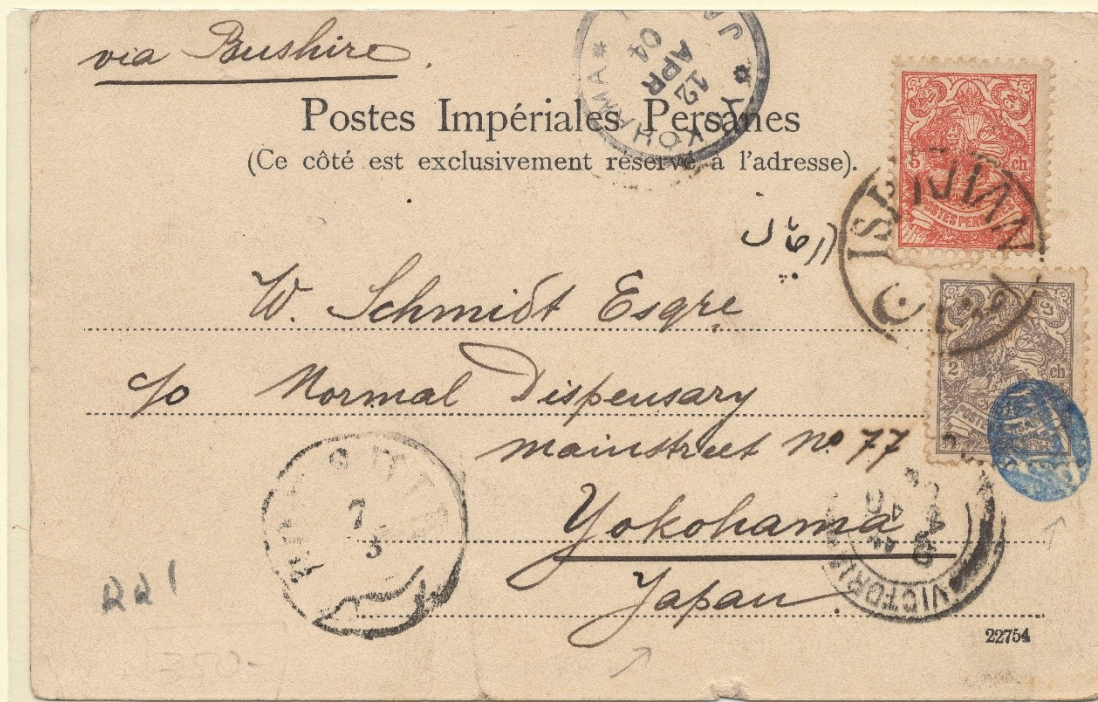 via Bushire.
YOKOHAMA
12
APR
04
Postes Impériales Persanes
(Ce côté est exclusivement réservé à l'adresse).
5 ch
POSTES PERSANES
ISPAHAN
2 ch
W. Schmidt Esqre
c/o Normal Dispensary
mainstreet No 77
Yokohama
Japan
BUSHIRE
7
3
VICTORIA
221
350-
22754